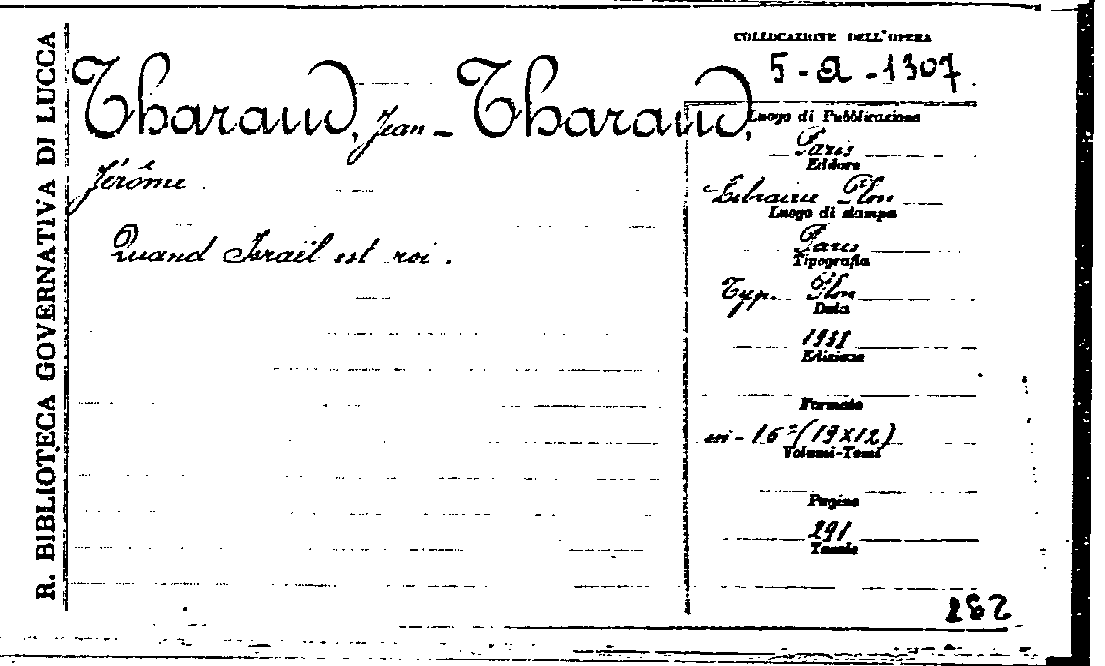 R. BIBLIOTECA GOVERNATIVA DI LUCCA
COLLOCAZIONE DELL'OPERA
5 - A - 1307
Tharaud, Jean - Tharaud,
Jérôme
Quand Israël est roi.
Luogo di Pubblicazione
Paris
Editore
Librairie Plon
Luogo di stampa
Paris
Tipografia
Typ. Plon
Data
Edizione
Formato
in-16º (19x12)
Volumi-Tomi
Pagine
291
Tavole